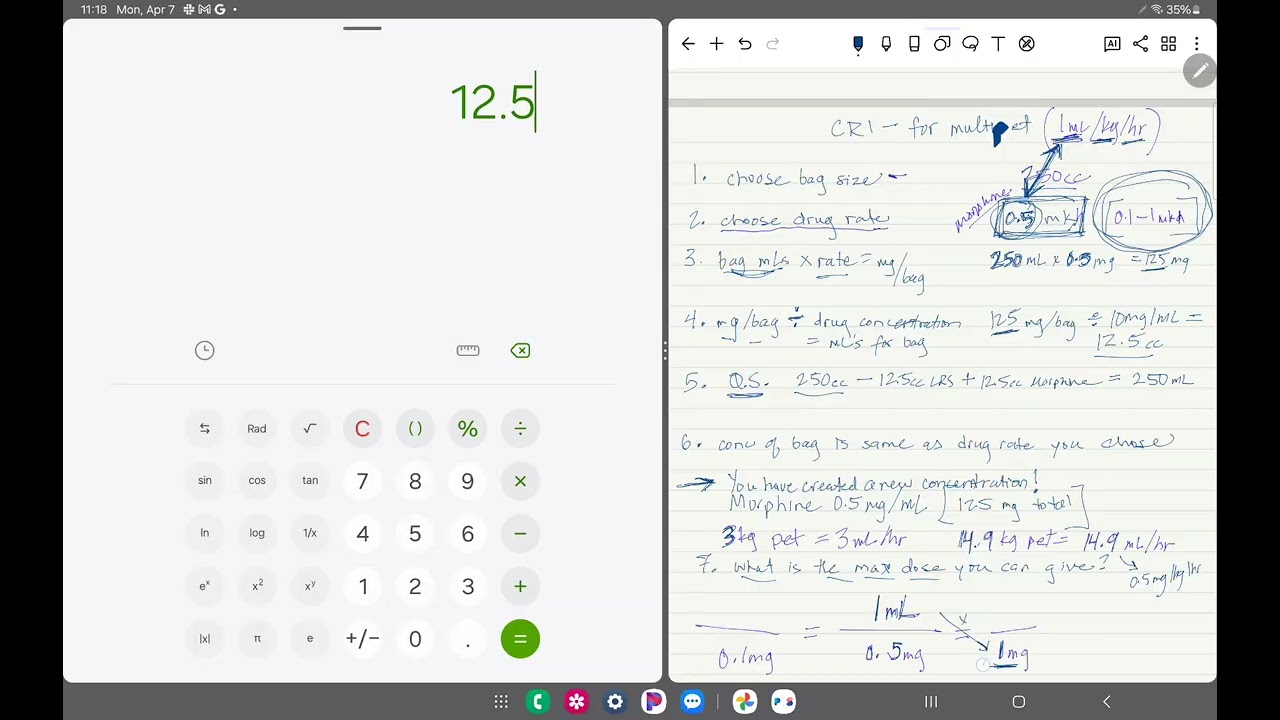 11:18 Mon, Apr 7
35%
12.5
Rad √ C () % ÷
sin cos tan 7 8 9 ×
ln log 1/x 4 5 6 −
eˣ x² xʸ 1 2 3 +
|x| π e +/− 0 . =
T AI
CRI - for multipet (1mL/kg/hr)
1. choose bag size - 250cc
2. choose drug rate morphine 0.5 mkh [0.1-1mkh]
3. bag mLs x rate = mg/bag 250mL x 0.5mg = 125mg
4. mg/bag ÷ drug concentration 125 mg/bag ÷ 10mg/mL =
= mL's for bag 12.5cc
5. Q.S. 250cc - 12.5cc LRS + 12.5cc Morphine = 250mL
6. conc of bag is same as drug rate you chose
→ You have created a new concentration!
Morphine 0.5mg/mL [125 mg total]
3kg pet = 3mL/hr 14.9 kg pet = 14.9 mL/hr
7. what is the max dose you can give? 0.5mg/kg/hr
1mL x
= =
0.1mg 0.5mg 1mg